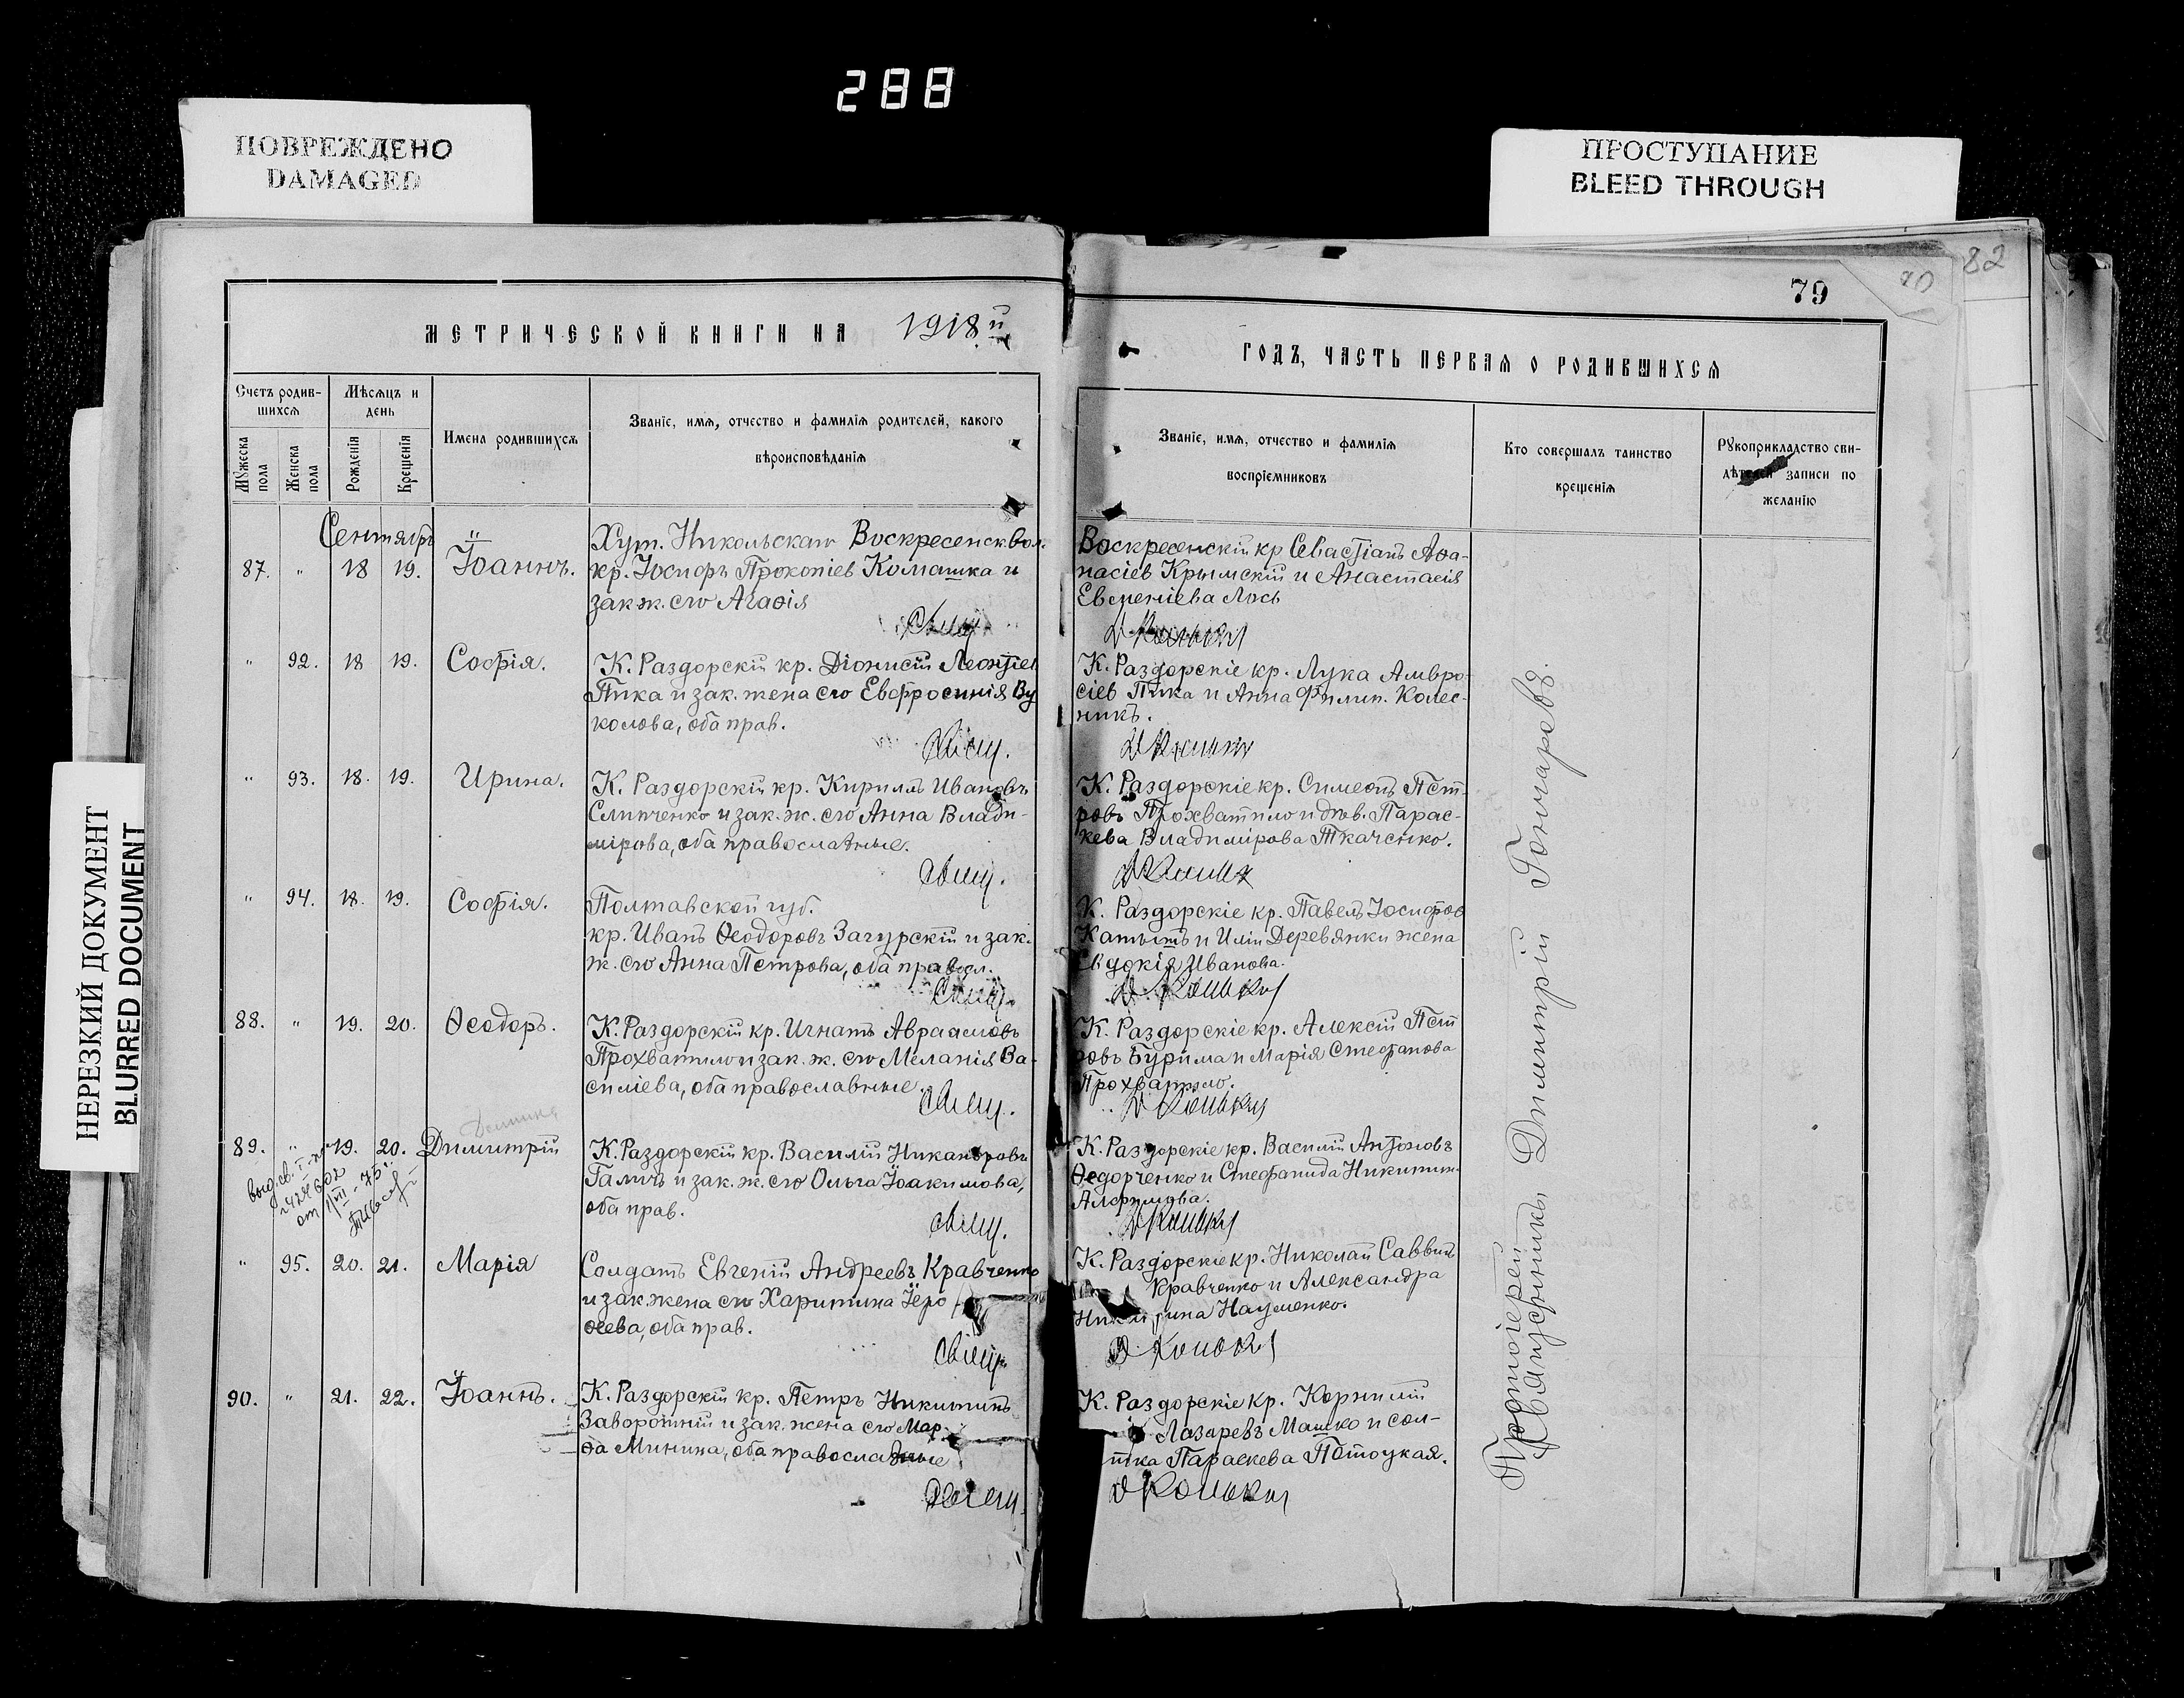 288
ПОВРЕЖДЕНО
DAMAGED
ПРОСТУПАНИЕ
BLEED THROUGH
НЕРЕЗКИЙ ДОКУМЕНТ
BLURRED DOCUMENT
82
79
МЕТРИЧЕСКОЙ КНИГИ НА 1918 й
ГОДЪ, ЧАСТЬ ПЕРВАЯ О РОДИВШИХСЯ
Счетъ родив-
шихся
Мужеска пола
Женска пола
Мѣсяцъ и
день
Рожденія
Крещенія
Имена родившихся
Званіе, имя, отчество и фамилія родителей, какого
вѣроисповѣданія
Званіе, имя, отчество и фамилія
воспріемниковъ
Кто совершалъ таинство
крещенія
Рукоприкладство сви-
дѣтелей записи по
желанію
Сентябрь
87. " 18 19. Іоаннъ.
Хут. Никольскаго Воскресенск. вол.
кр. Іосифъ Прокопіев Комашка и
зак. ж. его Агаѳія
Воскресенскій кр Севастіанъ Аѳа-
насіев Крымскій и Анастасія
Евменіева Лось
" 92. 18 19. Софія.
К. Раздорскій кр. Діонисій Леонтіев
Пика и зак. жена его Евфросинія Ву
колова, оба прав.
К. Раздорскіе кр. Лука Амвро-
сіев Пика и Анна Филип. Колес-
никъ.
" 93. 18. 19. Ирина.
К. Раздорскій кр. Кириллъ Ивановъ
Слипченко и зак. ж. его Анна Влади-
мірова, оба православные.
К. Раздорскіе кр. Симеонъ Пет-
ровъ Прохватило и дѣв. Парас-
кева Владимірова Ткаченко.
" 94. 18. 19. Софія.
Полтавской губ.
кр. Иванъ Ѳеодоровъ Загурскій и зак.
ж. его Анна Петрова, оба правосл.
К. Раздорскіе кр. Павелъ Іосифов
и Иліи Деревянки жена
Евдокія Иванова.
88. " 19. 20. Ѳеодоръ.
К. Раздорскій кр. Игнатъ Авраамовъ
Прохватило и зак. ж. его Меланія Ва-
силіева, оба православные.
К. Раздорскіе кр. Алексій Пет
ровъ Бурима и Марія Стефанова
Прохватило.
89. " 19. 20. Димитрій
К. Раздорскій кр. Василій Никаноровъ
Галичъ и зак. ж. его Ольга Іоакимова,
оба прав.
К. Раздорскіе кр. Василій Антоновъ
Ѳедорченко и Стефанида Никитин.
" 95. 20. 21. Марія
Солдатъ Евгеній Андреевъ Кравченко
и зак. жена его Харитина Іеро
ѳеева, оба прав.
К. Раздорскіе кр. Николай Саввинъ
Кравченко и Александра
Науменко.
90. " 21. 22. Іоаннъ.
К. Раздорскій кр. Петръ Никитинъ
Заворотній и зак. жена его Мар-
ѳа Минина, оба православные
К. Раздорскіе кр. Корнилій
Лазаревъ Машко и сол-
тка Параскева Потоцкая.
Протоіерей
Димитрій Гончаровъ.